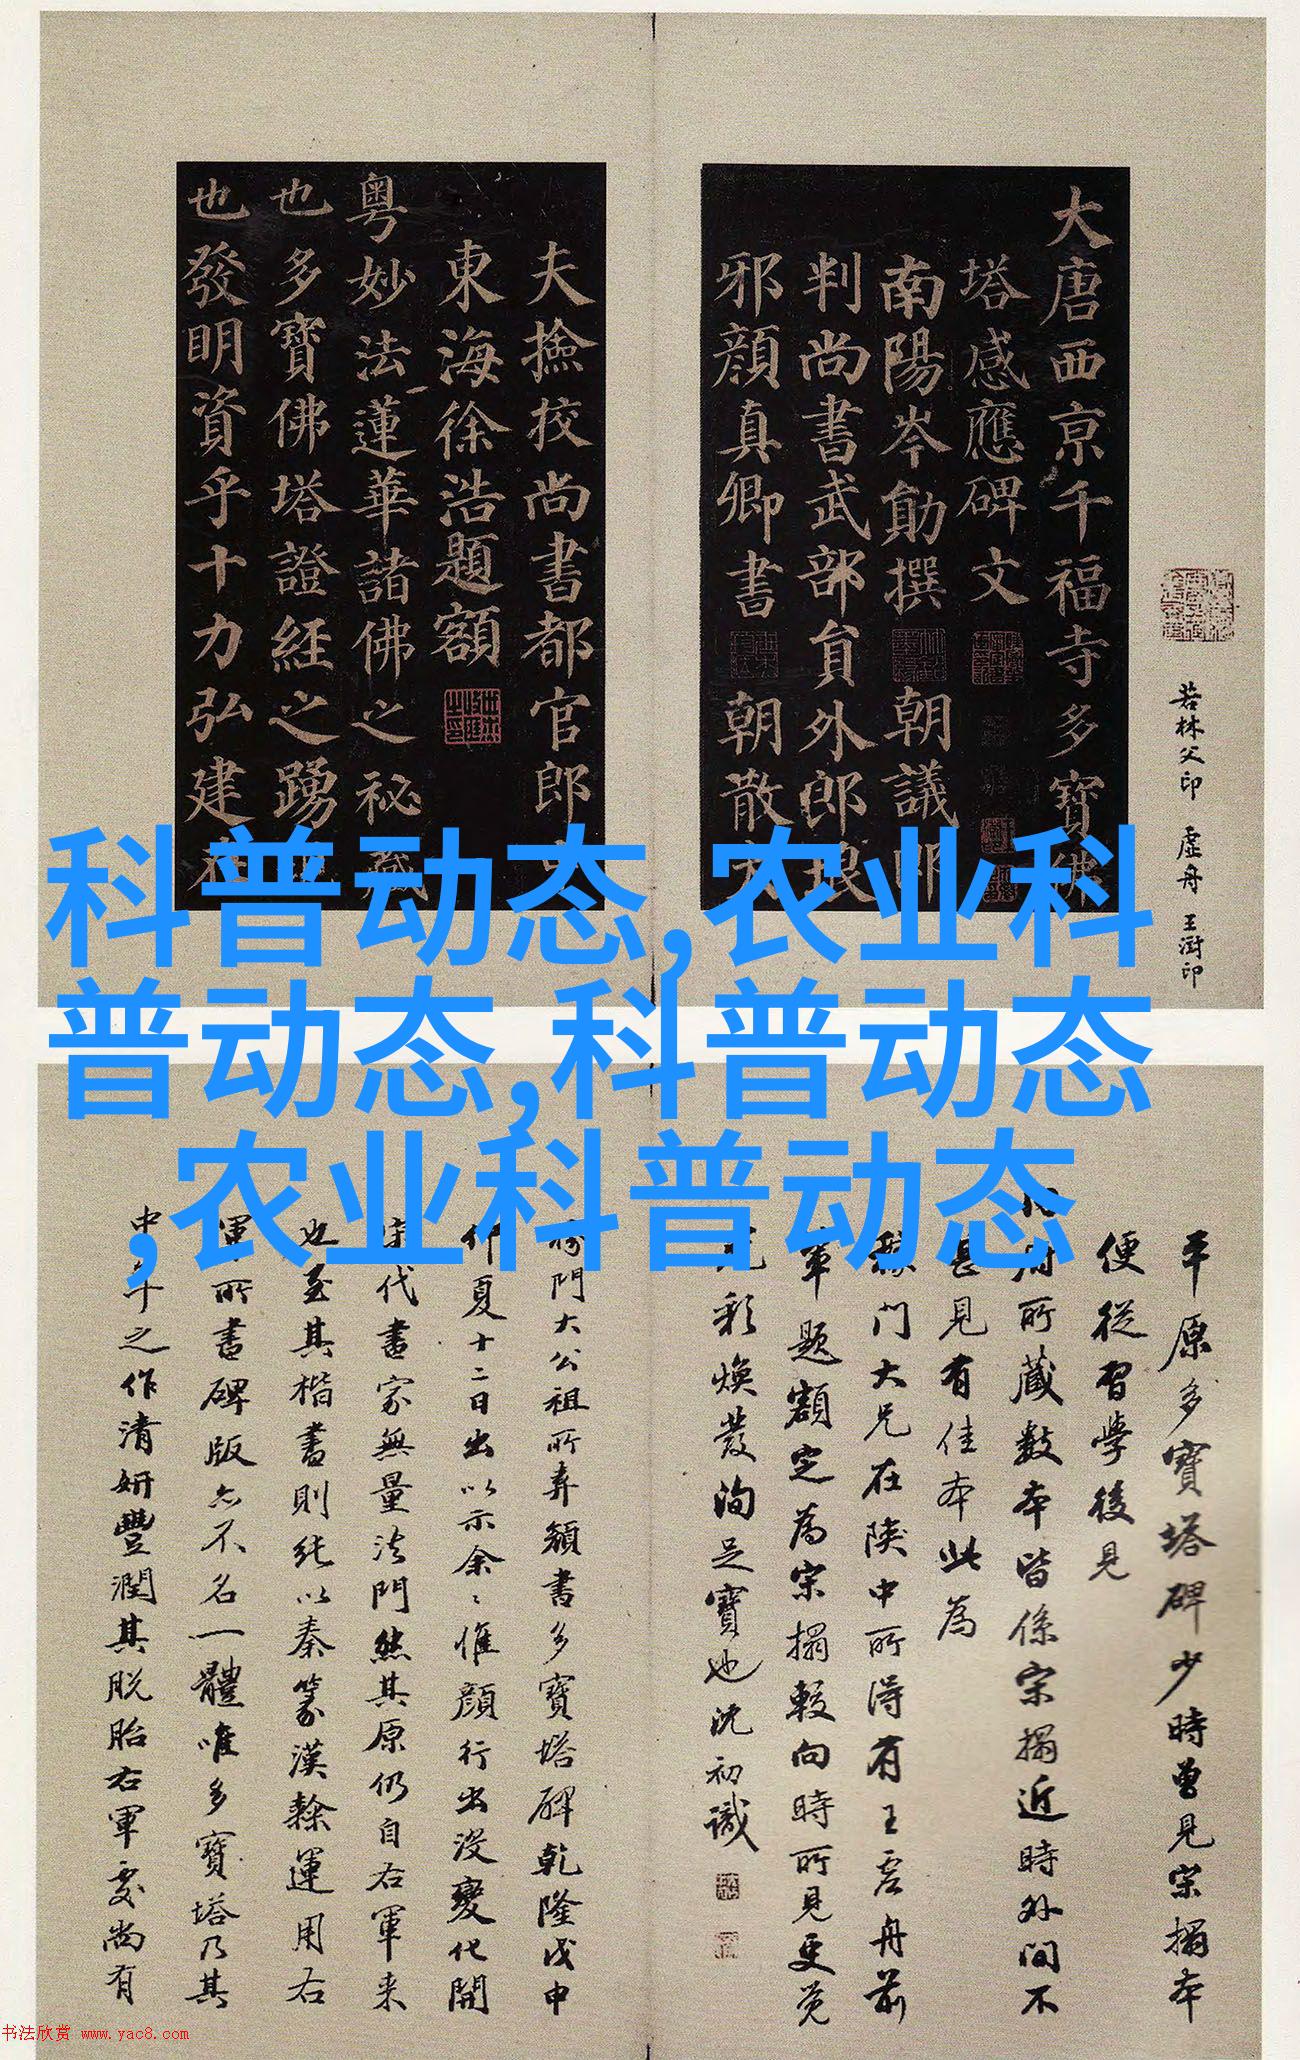 大唐西京千福寺多寶佛
塔感應碑文
南陽岑勛撰 朝議郎
判尚書武部員外郎琅
邪顏真卿書 朝散大
夫撿挍尚書都官郎中
東海徐浩題額
粵妙法蓮華諸佛之祕藏
也多寶佛塔證經之踴現
也發明資乎十力弘建在
若林父印 虛舟 王澍印
科普动态,农业科
普动态,科普动态
,农业科普动态
平原多寶塔碑少時曾見宋搨本
便從習學後見
所藏數本皆係宋搨近時外間不
甚見有佳本此為
門大兄在陝中所得有王虛舟前
輩題額定為宋搨較向時所見更覺
彩煥發洵足寶也沈初識
門大公祖所弆顏書多寶塔碑乾隆戊申
仲夏十二日出以示余惟顏行出沒變化開
宋代書家無量法門然其原仍自右軍來
也至其楷書則純以秦篆漢隸運用右
軍所書碑版亦不名一體唯多寶塔乃其
中年之作清妍豐潤其脫胎右軍處尚有
书法欣赏 www.yac8.com